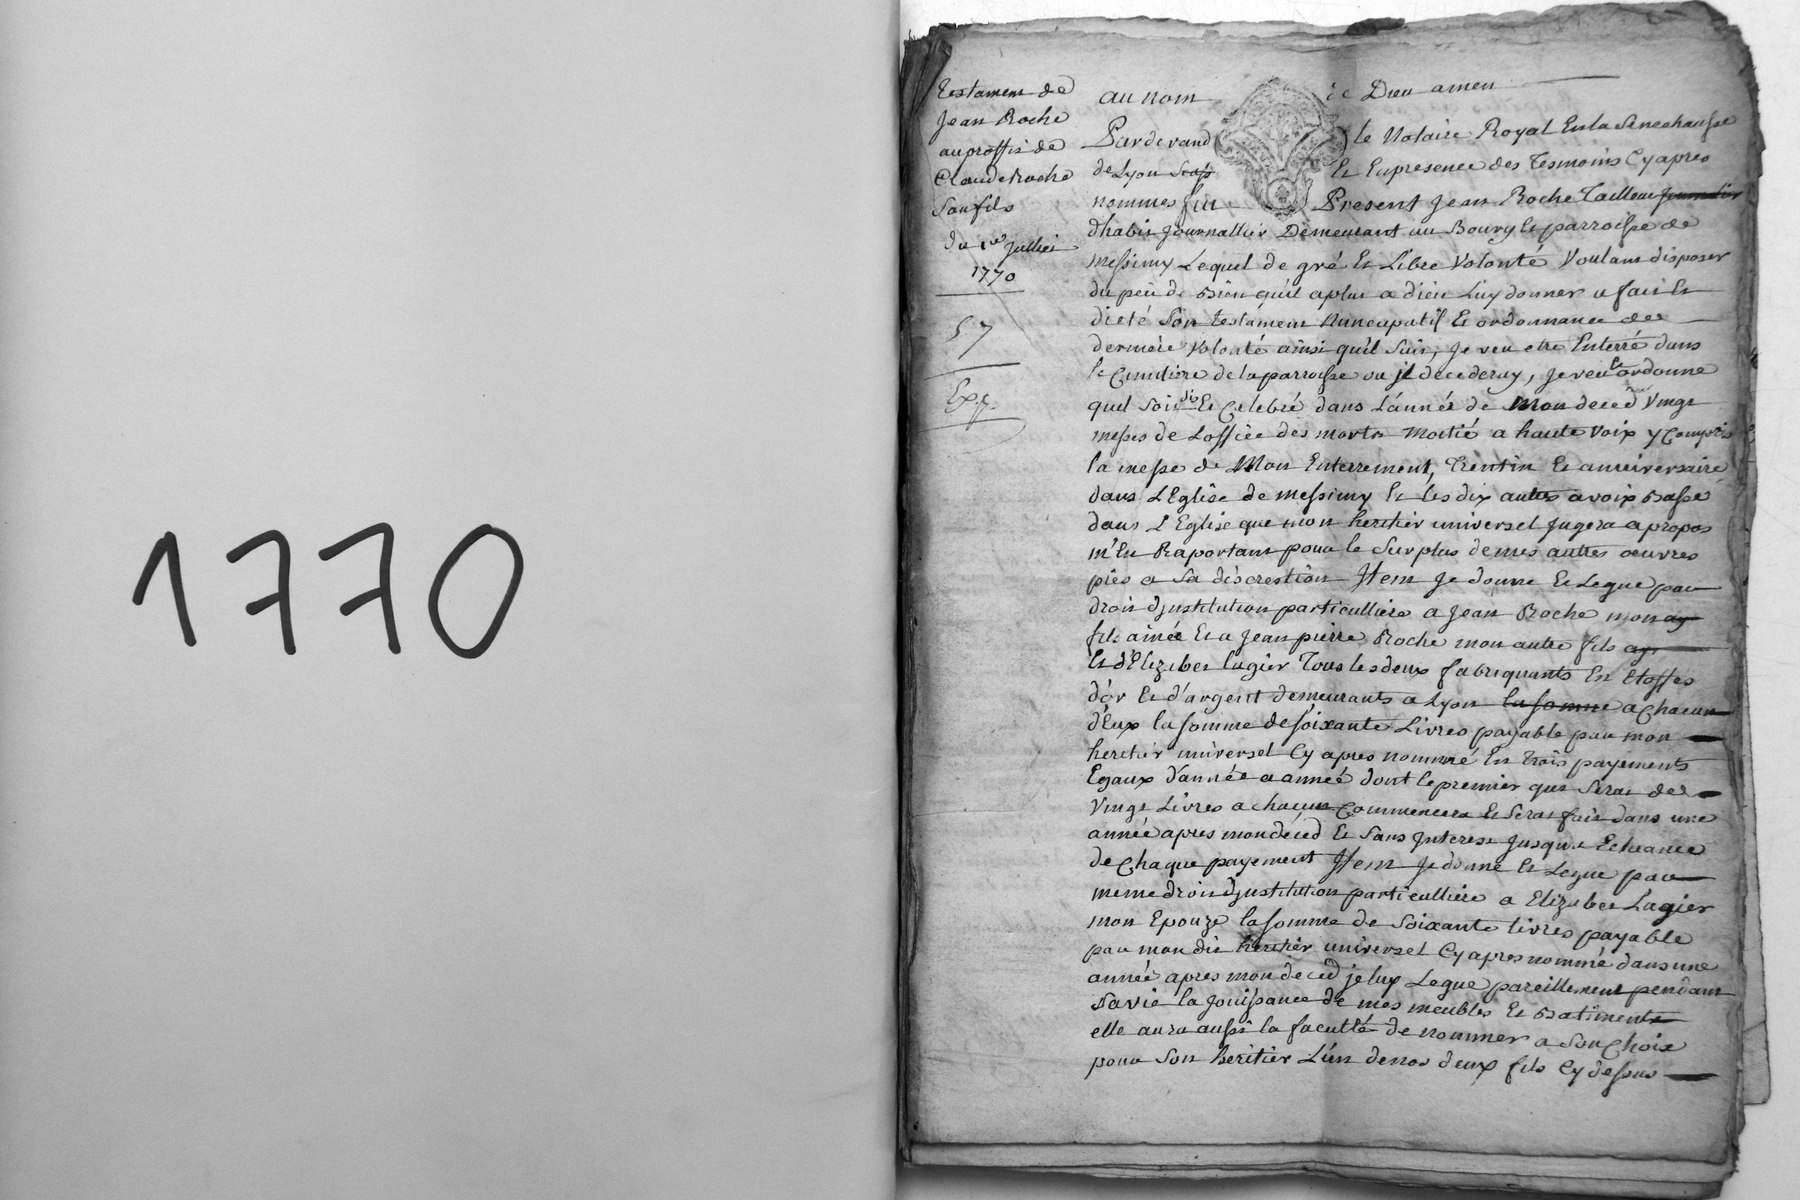 1770
Testament de
Jean Roche
au proffit de
Claude Roche
Son fils
du 1er Juillet
1770
57
Exp.
au nom de Dieu amen
Pardevand le Notaire Royal En la Senechaussé
de Lyon Et En presence des Tesmoins Cy apres
nommés fut Present Jean Roche Tailleur
dhabit Journallier Demeurant au Bourg Et parroisse de
messimy Lequel de gré Et Libre Volonté Voulant disposer
du peu de Bien quil a plut a dieu Luy donner a fait Et
dicté Son testament Nuncupatif Et ordonnance de
derniere Volonté ainsi quil Suit, Je veu etre Enterré dans
le Cimetiere de la parroisse ou jl decederay, Je veu Et ordonne
quel soit dit Et Celebré dans L'année de Mon deced Vingt
messes de L'office des morts Moitié a haute Voix y Compris
la messe de Mon Enterrement, Trentin Et anniversaire
dans L'Eglise de messimy Et les dix autres a voix Basse
dans L'Eglise que mon heritier universel Jugera a propos
m'En Raportant pour le Surplus de mes autres oeuvres
pies a Sa discrestion Jtem Je donne Et Legue par
droit djnstitution particulliere a Jean Roche mon ay
fils ainée Et a Jean pierre Roche mon autre fils ay
Et d'Elizabet Lagier Tous les deux fabriquants En Etoffes
d'or Et d'argent demeurants a Lyon la somme a Chacun
d'Eux la somme de soixante Livres payable par mon
heritier universel Cy apres nommé En trois payements
Egaux d'année a année dont le premier qui Sera de
Vingt Livres a chacun Commencera Et Sera fait dans une
année apres mon déced Et Sans Jnterest Jusqua Echeance
de Chaque payement Jtem Je donne Et Legue par
meme droit djnstitution particulliere a Elizabet Lagier
mon Epouze la somme de Soixante livres payable
par mon dit heritier universel Cy apres nommé dans une
année apres mon deced je luy Legue pareillement pendant
sa vie la Jouissance de mes meubles Et Batiments
elle aura aussi la faculté de nommer a Son Choix
pour Son heritier L'un de nos deux fils Cy dessus